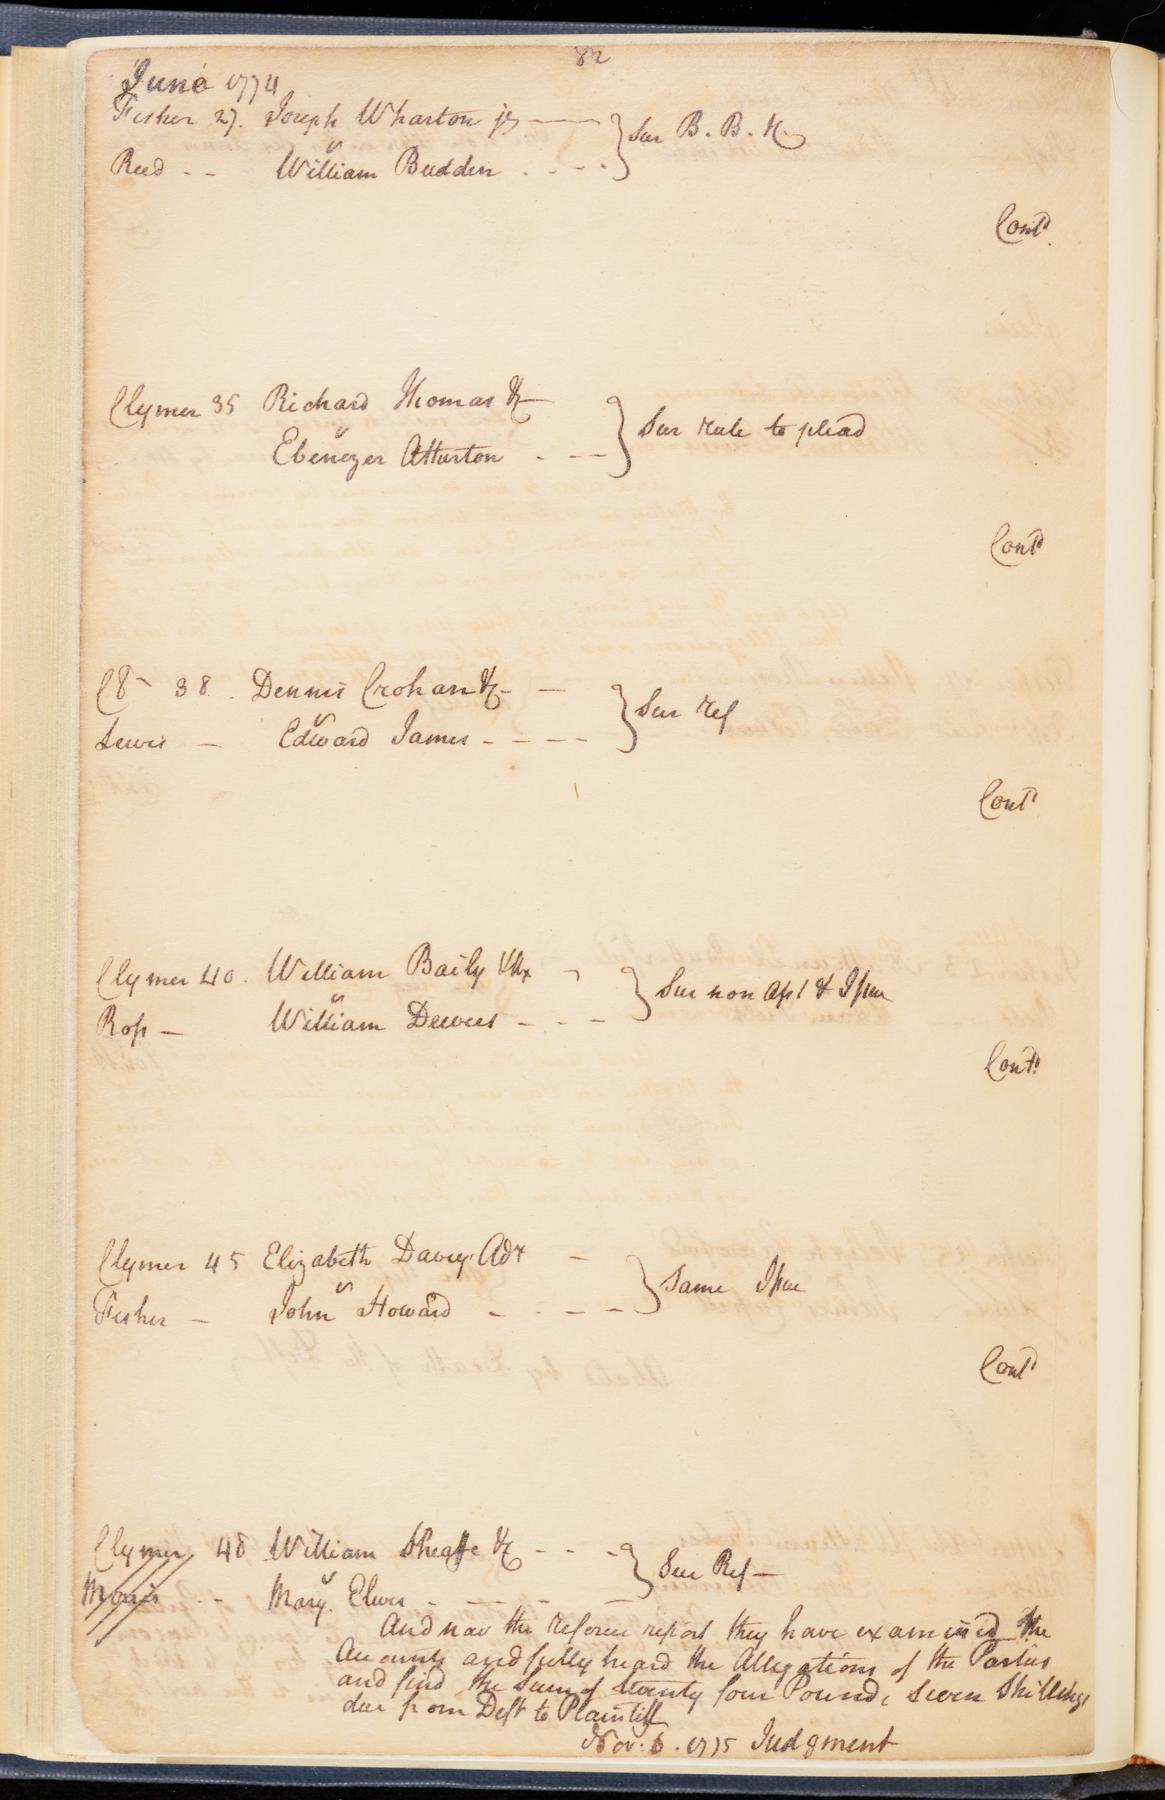 82
June 1774
Fisher 27. Joseph Wharton jr } Sur B. B. &c
vs
Reed - - William Budden . - - .
Contd
Clymer 35 Richard Thomas &c } Sur rule to plead
vs
Ebenezer Atturton . - -
Contd
38. Dennis Crohan &c - } Sur ref
vs
Lewis - Edward James - - - -
Contd
Clymer 40. William Baily & Ux } Sur non Asst & Issue
vs
Ross - William Dewees - - -
Contd
Clymer 45 Elizabeth Davey Adx - } Same Issue
vs
Fisher - John Howard - . - -
Contd
Clymer 48 William Sheaffe &c - - - } Sur Ref -
vs
Morris - - Mary Elwes - - - -
And now the referees report they have examined the
Accounts and fully heard the Allegations of the Parties
and find the Sum of twenty four Pounds, seven Shillings
due from Deft to Plaintiff
Nov. 6. 1775 Judgment